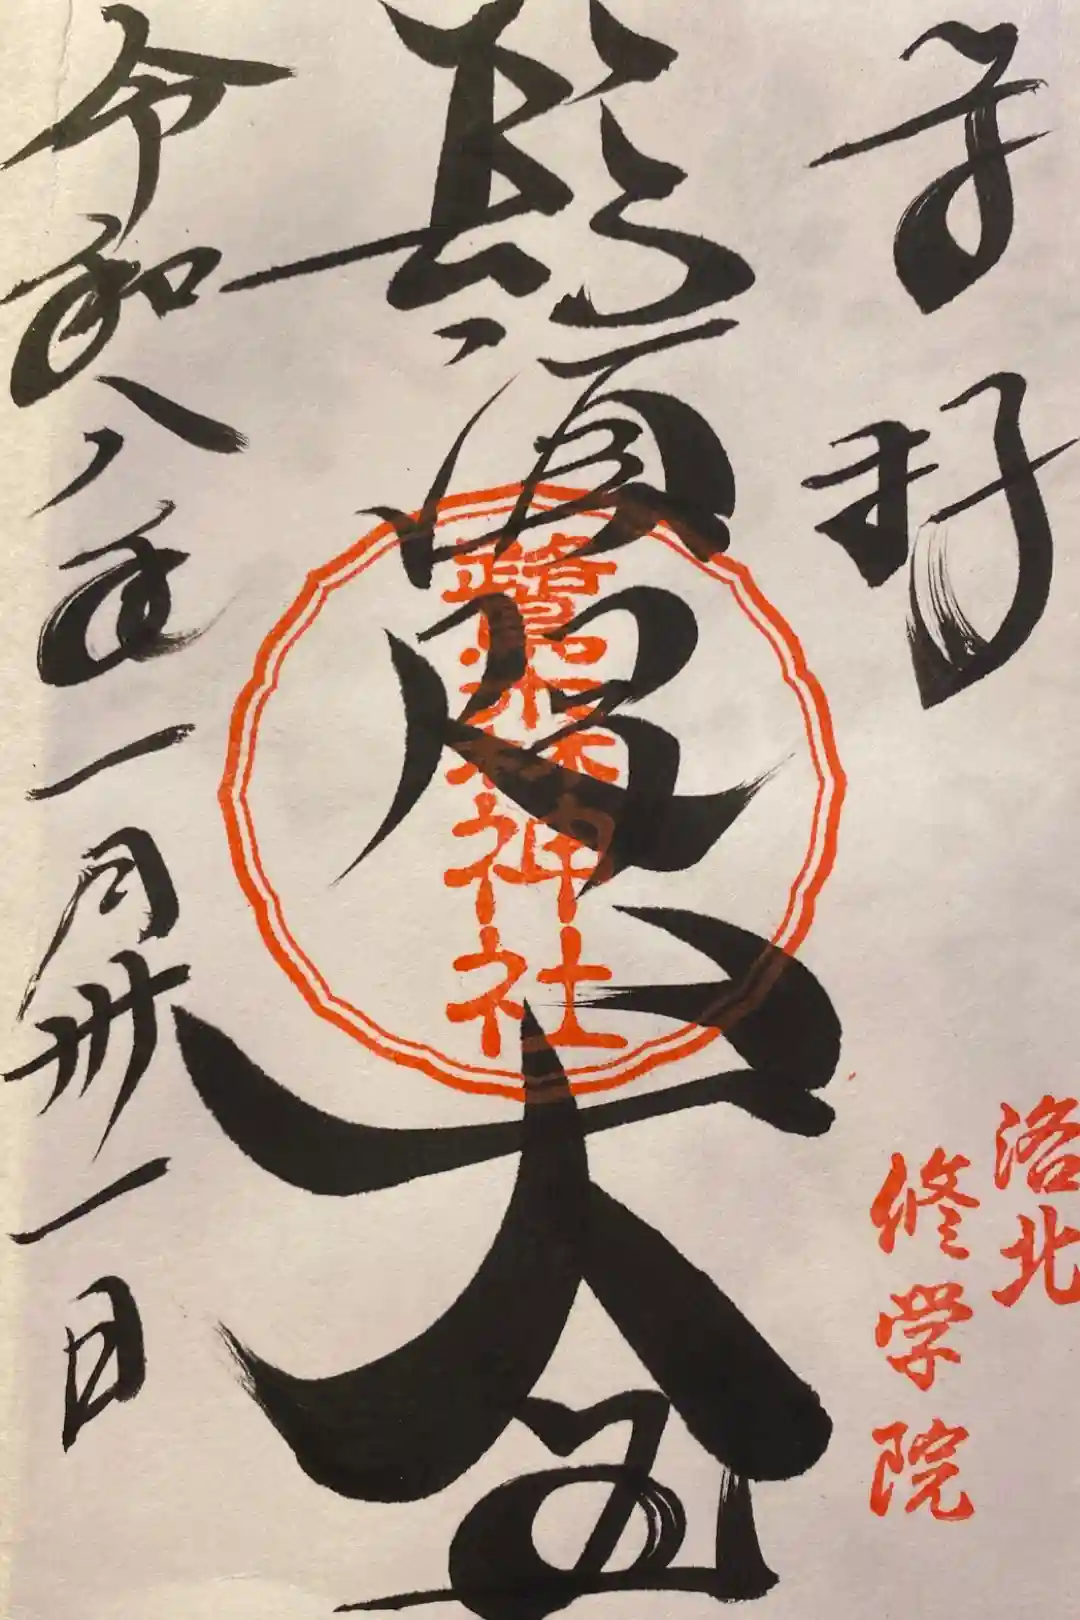 奉拝
洛北
修学院
鬚咫天王
鷺森神社
令和八年一月卅一日